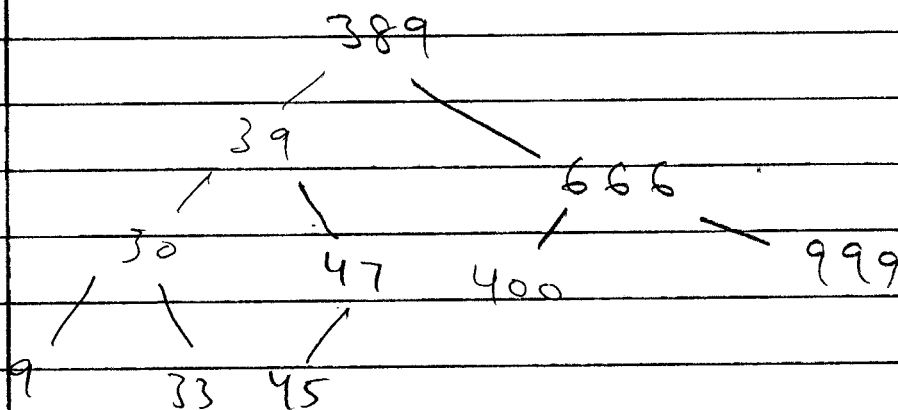 389
39
666
30
47
400
999
9
33
45